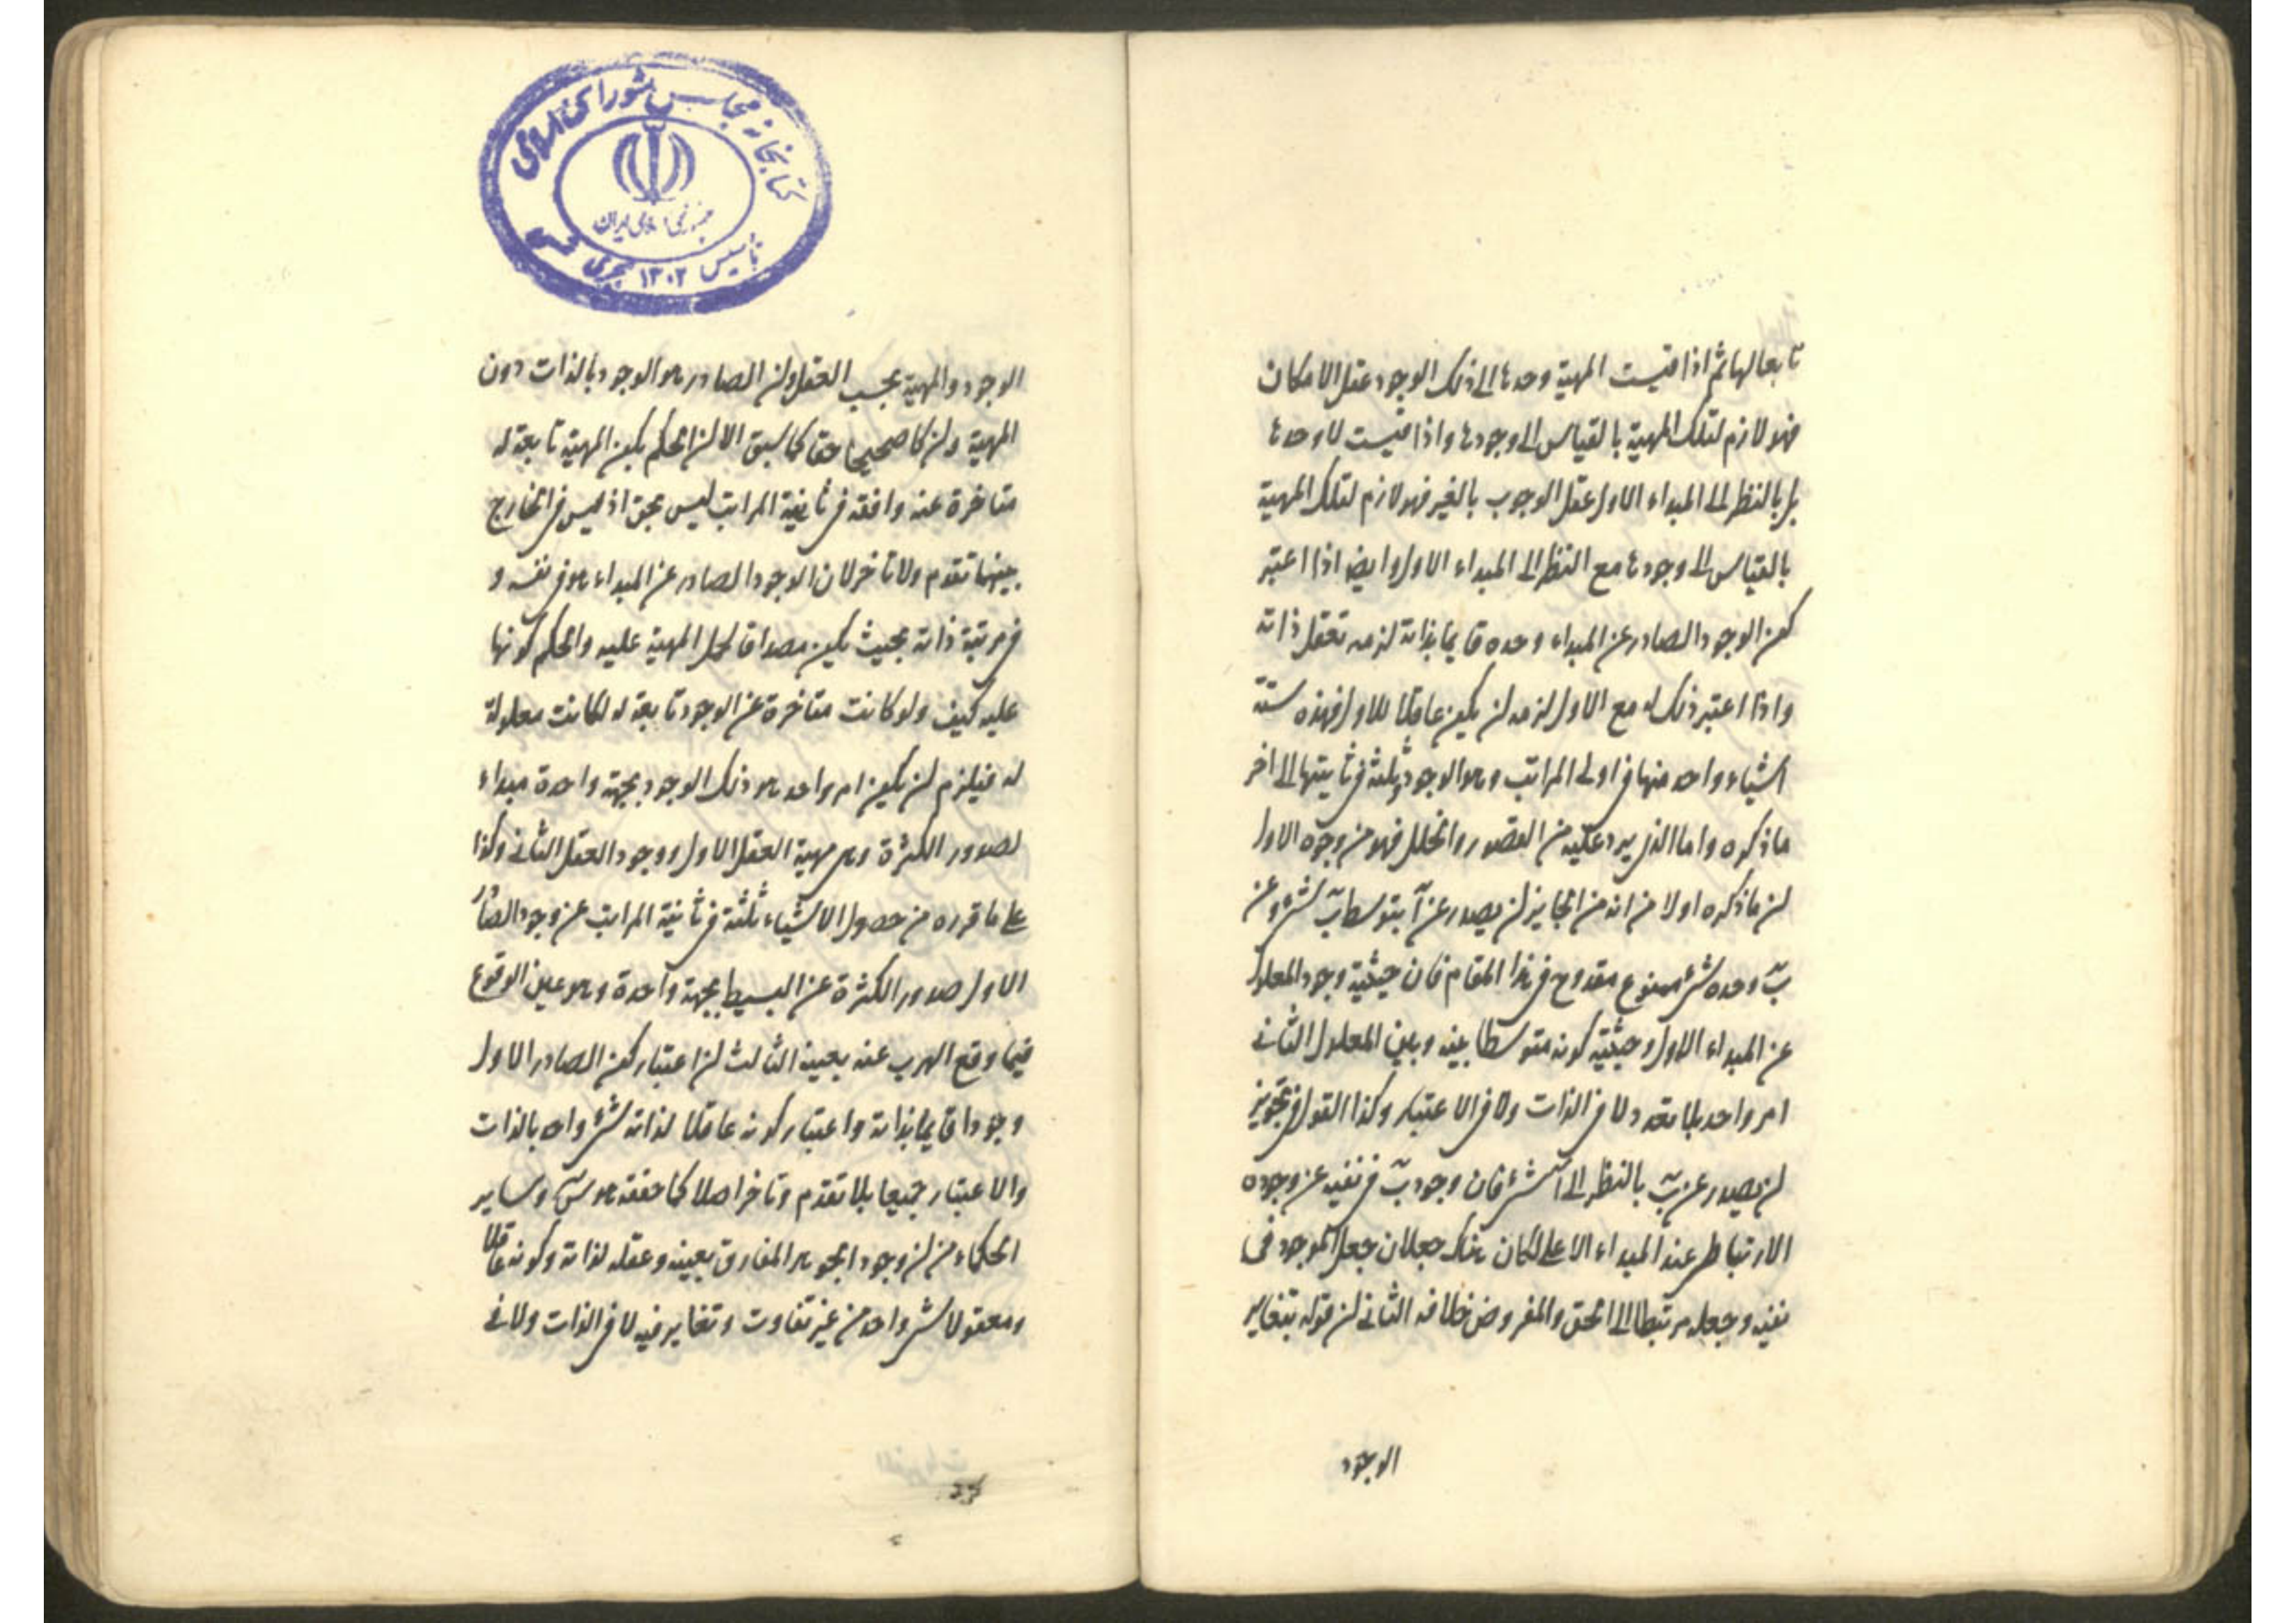 تابعا لها ثم اذا قيست المهية وحدها الى ذلك الوجود عقل الامكان
فهو لازم لتلك المهية بالقياس الى وجودها و اذا قيست لا وحدها
بل بالنظر الى المبداء الاول عقل الوجوب بالغير فهو لازم لتلك المهية
بالقياس الى وجودها مع النظر الى المبداء الاول و ايضا اذا اعتبر
كون الوجود الصادر عن المبداء وحده قايما بذاته لزمه تعقل ذاته
و اذا اعتبر ذلك له مع الاول لزمه ان يكون عاقلا للاول فهذه ستة
اشياء واحد منها فى اولى المراتب و هو الوجود و ثلثة فى ثانيتها الى اخر
ما ذكره و اما الذى يرد عليه من القصور و الخلل فهو من وجوه الاول
ان ما ذكره اولا من انه من الجايز ان يصدر عن آ بتوسط ب شئ و عن
ب وحده شئ ممنوع مقدوح فى هذا المقام فان حيثية وجود المعلول
عن المبداء الاول و حيثية كونه متوسطا بينه و بين المعلول الثانى
امر واحد بلا تعدد لا فى الذات و لا فى الاعتبار و كذا القول فى تجويز
ان يصدر عن ب بالنظر الى آ شئ فان وجود ب فى نفسه عن وجوده
الارتباطى عند المبداء الاعلى لكان هناك جعلان جعل الموجود فى
نفسه و جعله مرتبطا الى الحق و المفروض خلافه الثانى ان قوله بتغاير
الوجود
كتابخانه مجلس شوراى اسلامى
جمهورى اسلامى ايران
تأسيس ۱۳۰۲ هجرى شمسى
الوجود و المهية بحسب العقل و ان الصادر هو الوجود بالذات دون
المهية و ان كا صحيحا حقا كما سبق الا ان الحكم بكون المهية تابعة له
متاخرة عنه واقعة فى ثانية المراتب ليس بحق اذ ليس فى الخارج
بينهما تقدم و لا تاخر لان الوجود الصادر عن المبداء هو فى نفسه و
فى مرتبة ذاته بحيث يكون مصداقا لحمل المهية عليه و الحكم كونها
عليه كيف و لو كانت متاخرة عن الوجود تابعة له لكانت معلولة
له فيلزم ان يكون امر واحد هو ذلك الوجود بجهة واحدة مبداء
لصدور الكثرة و هى مهية العقل الاول و وجود العقل الثانى و كذا
على ما قرره من حصول الاشياء ثلثة فى ثانية المراتب عن وجود الصادر
الاول صدور الكثرة عن البسيط بجهة واحدة و هو عين الوقوع
فيما وقع الهرب عنه بعينه الثالث ان اعتبار كون الصادر الاول
وجودا قايما بذاته و اعتبار كونه عاقلا لذاته شئ واحد بالذات
و الاعتبار جميعا بلا تقدم و تاخر اصلا كما حققه هو س و ساير
الحكماء من ان وجود الجوهر المفارق بعينه و عقله لذاته و كونه عاقلا
و معقولا شئ واحد من غير تفاوت و تغاير فيه لا فى الذات و لا فى